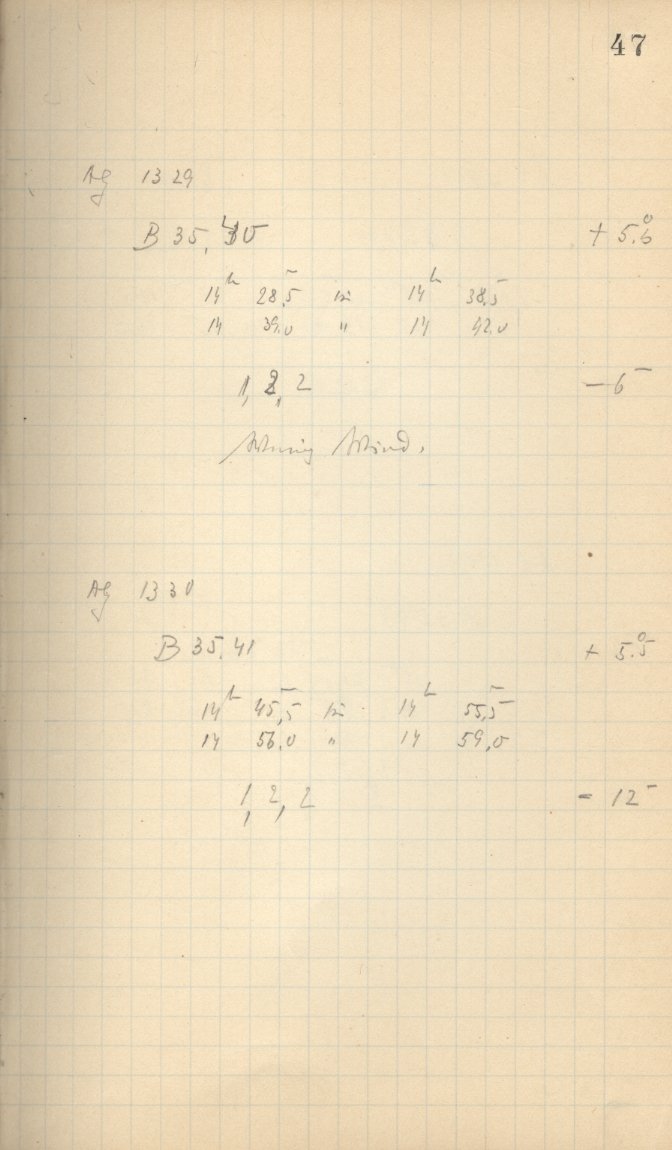 47
AG 1329
B 35,40 + 5.6°
14h 28,5 bis 14h 38,5
14 39.0 " 14 42.0
1, 2, 2 - 6
Wenig Wind.
AG 1330
B 35.41 + 5.5°
14h 45,5 bis 14h 55,5
14 56.0 " 14 59,0
1, 2, 2 - 12